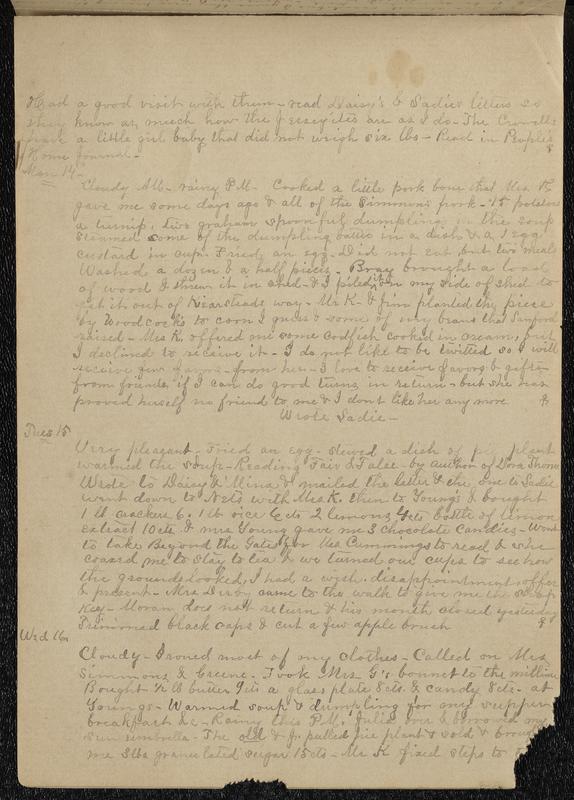 Had a good visit with them - read Daisy's & Sadie's letters so
they know as much how the Jerseyites are as I do - The Crowells
have a little girl baby that did not weigh six lbs - Read in People's
Home Journal -
Mon 14 -
Cloudy AM - rainy P.M - Cooked a little pork bone that Mrs K
gave me some days ago & all of the Simmons pork - 15 potatoes
a turnip, two graham spoonfuls dumpling in the soup
steamed some of the dumpling batter in a dish & a 1 egg
custard in cup. Fried an egg. Did not eat but two meals
Washed a dozen & a half pieces - Bray brought a load
of wood & threw it in shed - & I piled on my side of shed to
get it out of Kiersteads way - Mr K - & Jim planted the piece
by Woodcocks to corn I guess & some of my beans that Sanford
raised - Mrs K. offered me some codfish cooked in cream, but
I declined to receive it - I do not like to be twitted so I will
receive few favors - from her - I love to receive favors & gifts
from friends, if I can do good turns in return - but she has
proved herself no friend to me & I dont like her any more
Wrote Sadie -
Tues 15
Very pleasant - Fried an egg - stewed a dish of pie plant
warmed the soup - Reading Fair & False - by author of Dora Thorne
Wrote to Daisy & Mina & mailed the letter & the one to Sadie
went down to with Mrs K. then to Young's & bought
1 lb crackers 6. 1 lb rice 6 cts 2 lemons 4cts bottle of lemon
extract 10cts & Mrs Young gave me 3 Chocolate Candies - Went
to take Beyond the Gates for Mrs Cummings to read & she
coaxed me to stay to tea & we turned our cups to see how
the grounds looked, I had a wish, disappointment, offer
& present - Mrs Derby came to the walk to give me the
Key - Moran does not return & his month closed yesterday
Trimmed black caps & cut a few apple brush
Wed 16
Cloudy - Ironed most of my clothes - Called on Mrs
Simmons & Greene. Took Mrs G's bonnet to the
Bought ½ lb butter a glass plate 5cts & candy 5cts - at
Youngs - Warmed soup & dumpling for my supper
breakfast &c - Rainy this P.M. Julia over & borrowed my
sun umbrella - The old & Jr pulled pie plant & sold &
me 3lbs granulated sugar 15cts - Mr K fixed steps to